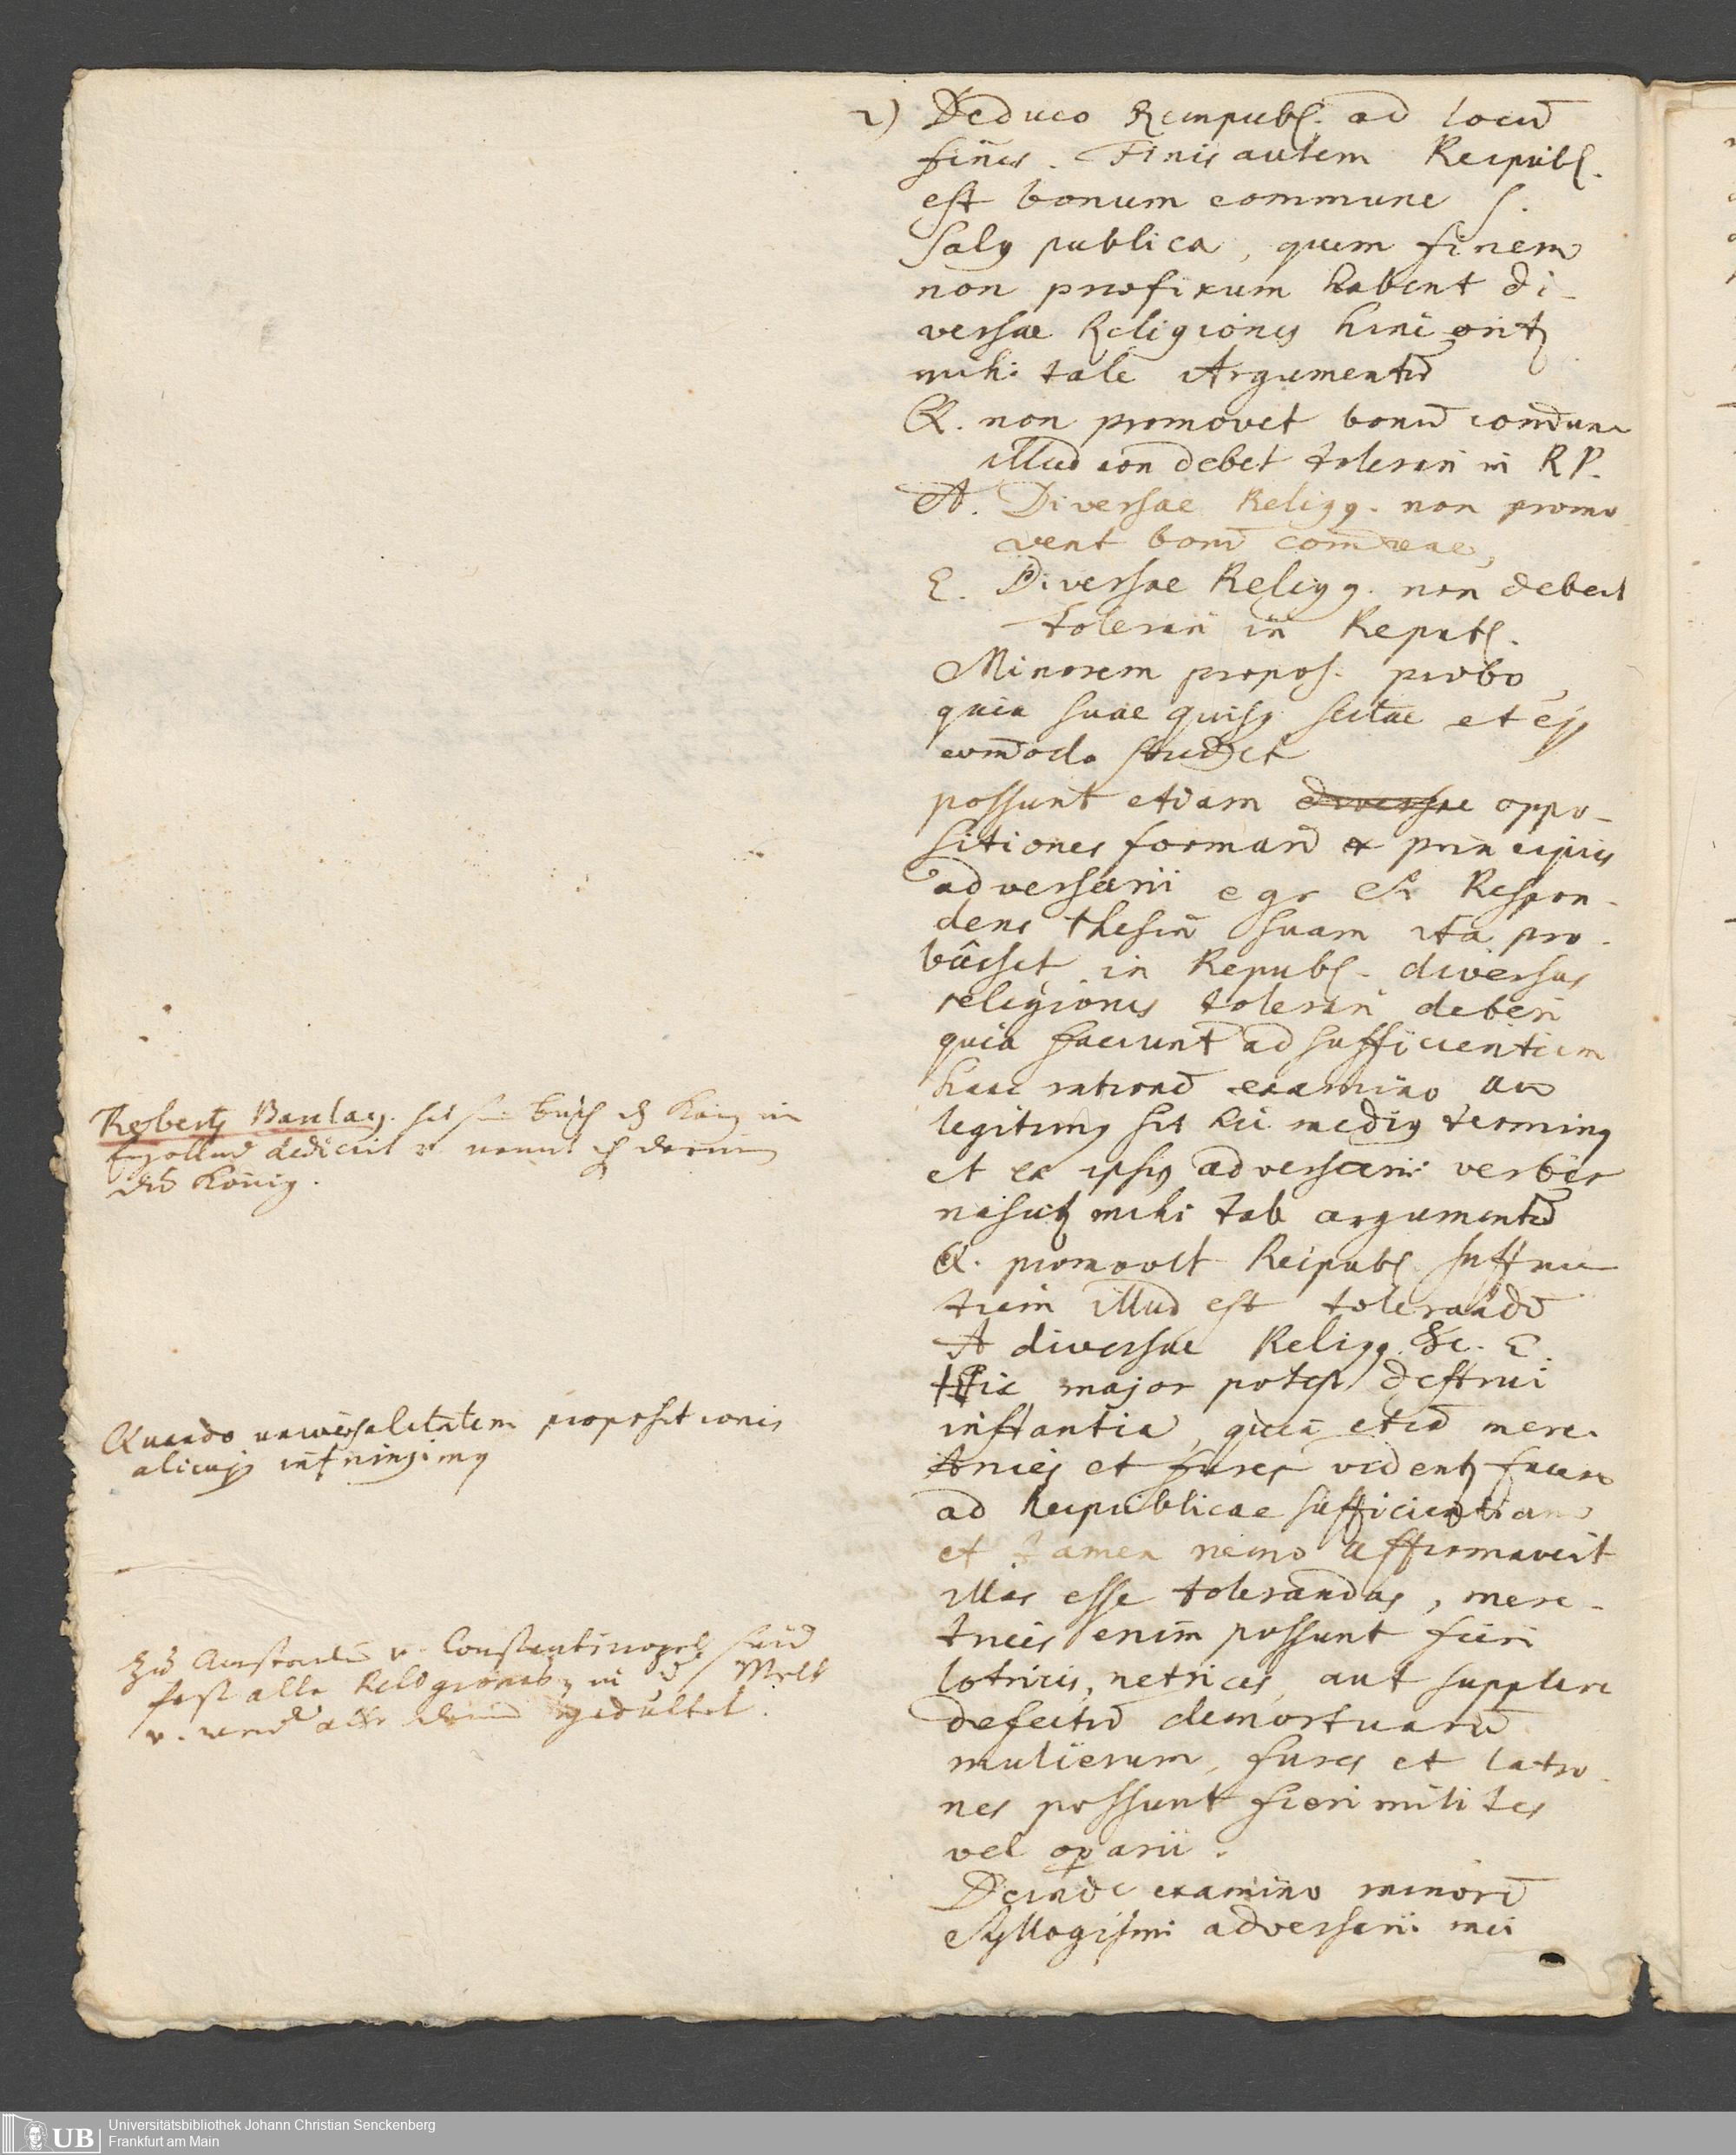 2) Deduco Rempubl. ad locū
fines. Finis autem Reipubl.
est bonum commune s.
salus publica, quem finem
non praefixum habent di-
versae Religiones hinc orit
mihi tale Argumentū
Q. non promovet bonū com̄une
illud non debet tolerari in RP.
A. Diversae Religg. non promo
vent bonū com̄une,
E. Diversae Religg. non debent
tolerari in Republ.
Minorem propos. probo,
quia suae quisq sectae et ejus
com̄odo studet
possunt etiam diversae oppo-
sitiones formari ex principiis
adversarii e gr Si Respon-
dens thesin suam ita pro-
bâsset in Republ. diversas
religiones tolerari deberi
quia faciunt ad sufficientiam
hanc rationē examino an
legitimus sit hic medius terminus
et ex ipsius adversarii verbis
nascit mihi tale argumentū
Q. promovet Reipubl. sufficien
tiam illud est tolerandū
A diversae Religg. &c. E.
Hic major potest destrui
instantia, quia etiā mere-
trices et fures vident facere
ad Reipublicae sufficientiam
et tamen nemo affirmaverit
illas esse tolerandas, mere-
trices enim possunt fieri
lotrices, netrices, aut supplere
defectū demortuarū
mulierum, fures et latro-
nes possunt fieri milites
vel operarii.
Deinde examino minorē
Syllogismi adversarii mei
Robertus Barclay. hat sein buch dem König in
Engolland dedicirt u. nennt ihn darin
du König.
Quando universalitatem propositionis
alicujus infringimus
Zu Amsterdam u. Constantinopel sind
fast alle Religionen in d. Welt
u. werdē alle gedultet.